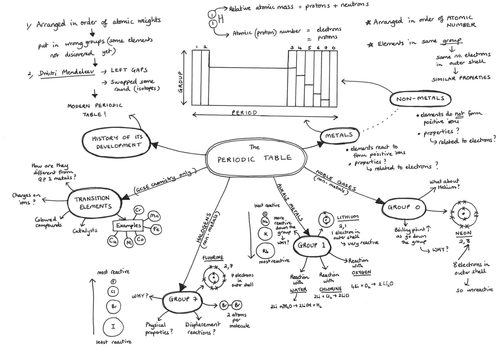 1, Arranged in order of atomic weights
put in wrong groups (some elements
not discovered yet)
2, Dmitri Mendeleev → LEFT GAPS
→ Swapped some
round (isotopes)
MODERN PERIODIC
TABLE!
HISTORY OF ITS
DEVELOPMENT
Relative atomic mass = protons + neutrons
H
Atomic (proton) number = electrons
= protons
1 2
3 4 5 6 7 0
GROUP
PERIOD
* Arranged in order of ATOMIC
NUMBER
* Elements in same group
same no. electrons
in outer shell
SIMILAR PROPERTIES
NON-METALS
• elements do not form
positive ions
• properties?
↳ related to electrons?
METALS
• elements react to
form positive ions
• properties?
↳ related to electrons?
The
PERIODIC TABLE
(GCSE chemistry only)
TRANSITION
ELEMENTS
How are they
different from
GP 1 metals?
Charges on
ions?
Coloured
compounds
Catalysts
Examples
Cr
Mn
Fe
Co
Ni
Cu
HALOGENS
(non metals)
GROUP 7
most reactive
F
Cl
Br
I
least reactive
WHY?
FLUORINE
2,7
7 electrons
in outer
shell
Br Br
2 atoms
per
molecule
Physical
properties?
Displacement
reactions?
ALKALI METALS
GROUP 1
least reactive
Li
Na
K
Rb
most reactive
more reactive
down the
group
WHY?
LITHIUM
2,1
1 electron in
outer shell
∴ very reactive
Reaction
with
WATER
2Li + 2H₂O → 2LiOH + H₂
Reaction
with
CHLORINE
2Li + Cl₂ → 2LiCl
Reaction
with
OXYGEN
4Li + O₂ → 2Li₂O
NOBLE GASES
(non metals)
GROUP 0
What about
Helium?
Boiling point ↑
as go down
the group
WHY?
NEON
2,8
8 electrons in
outer shell
so unreactive